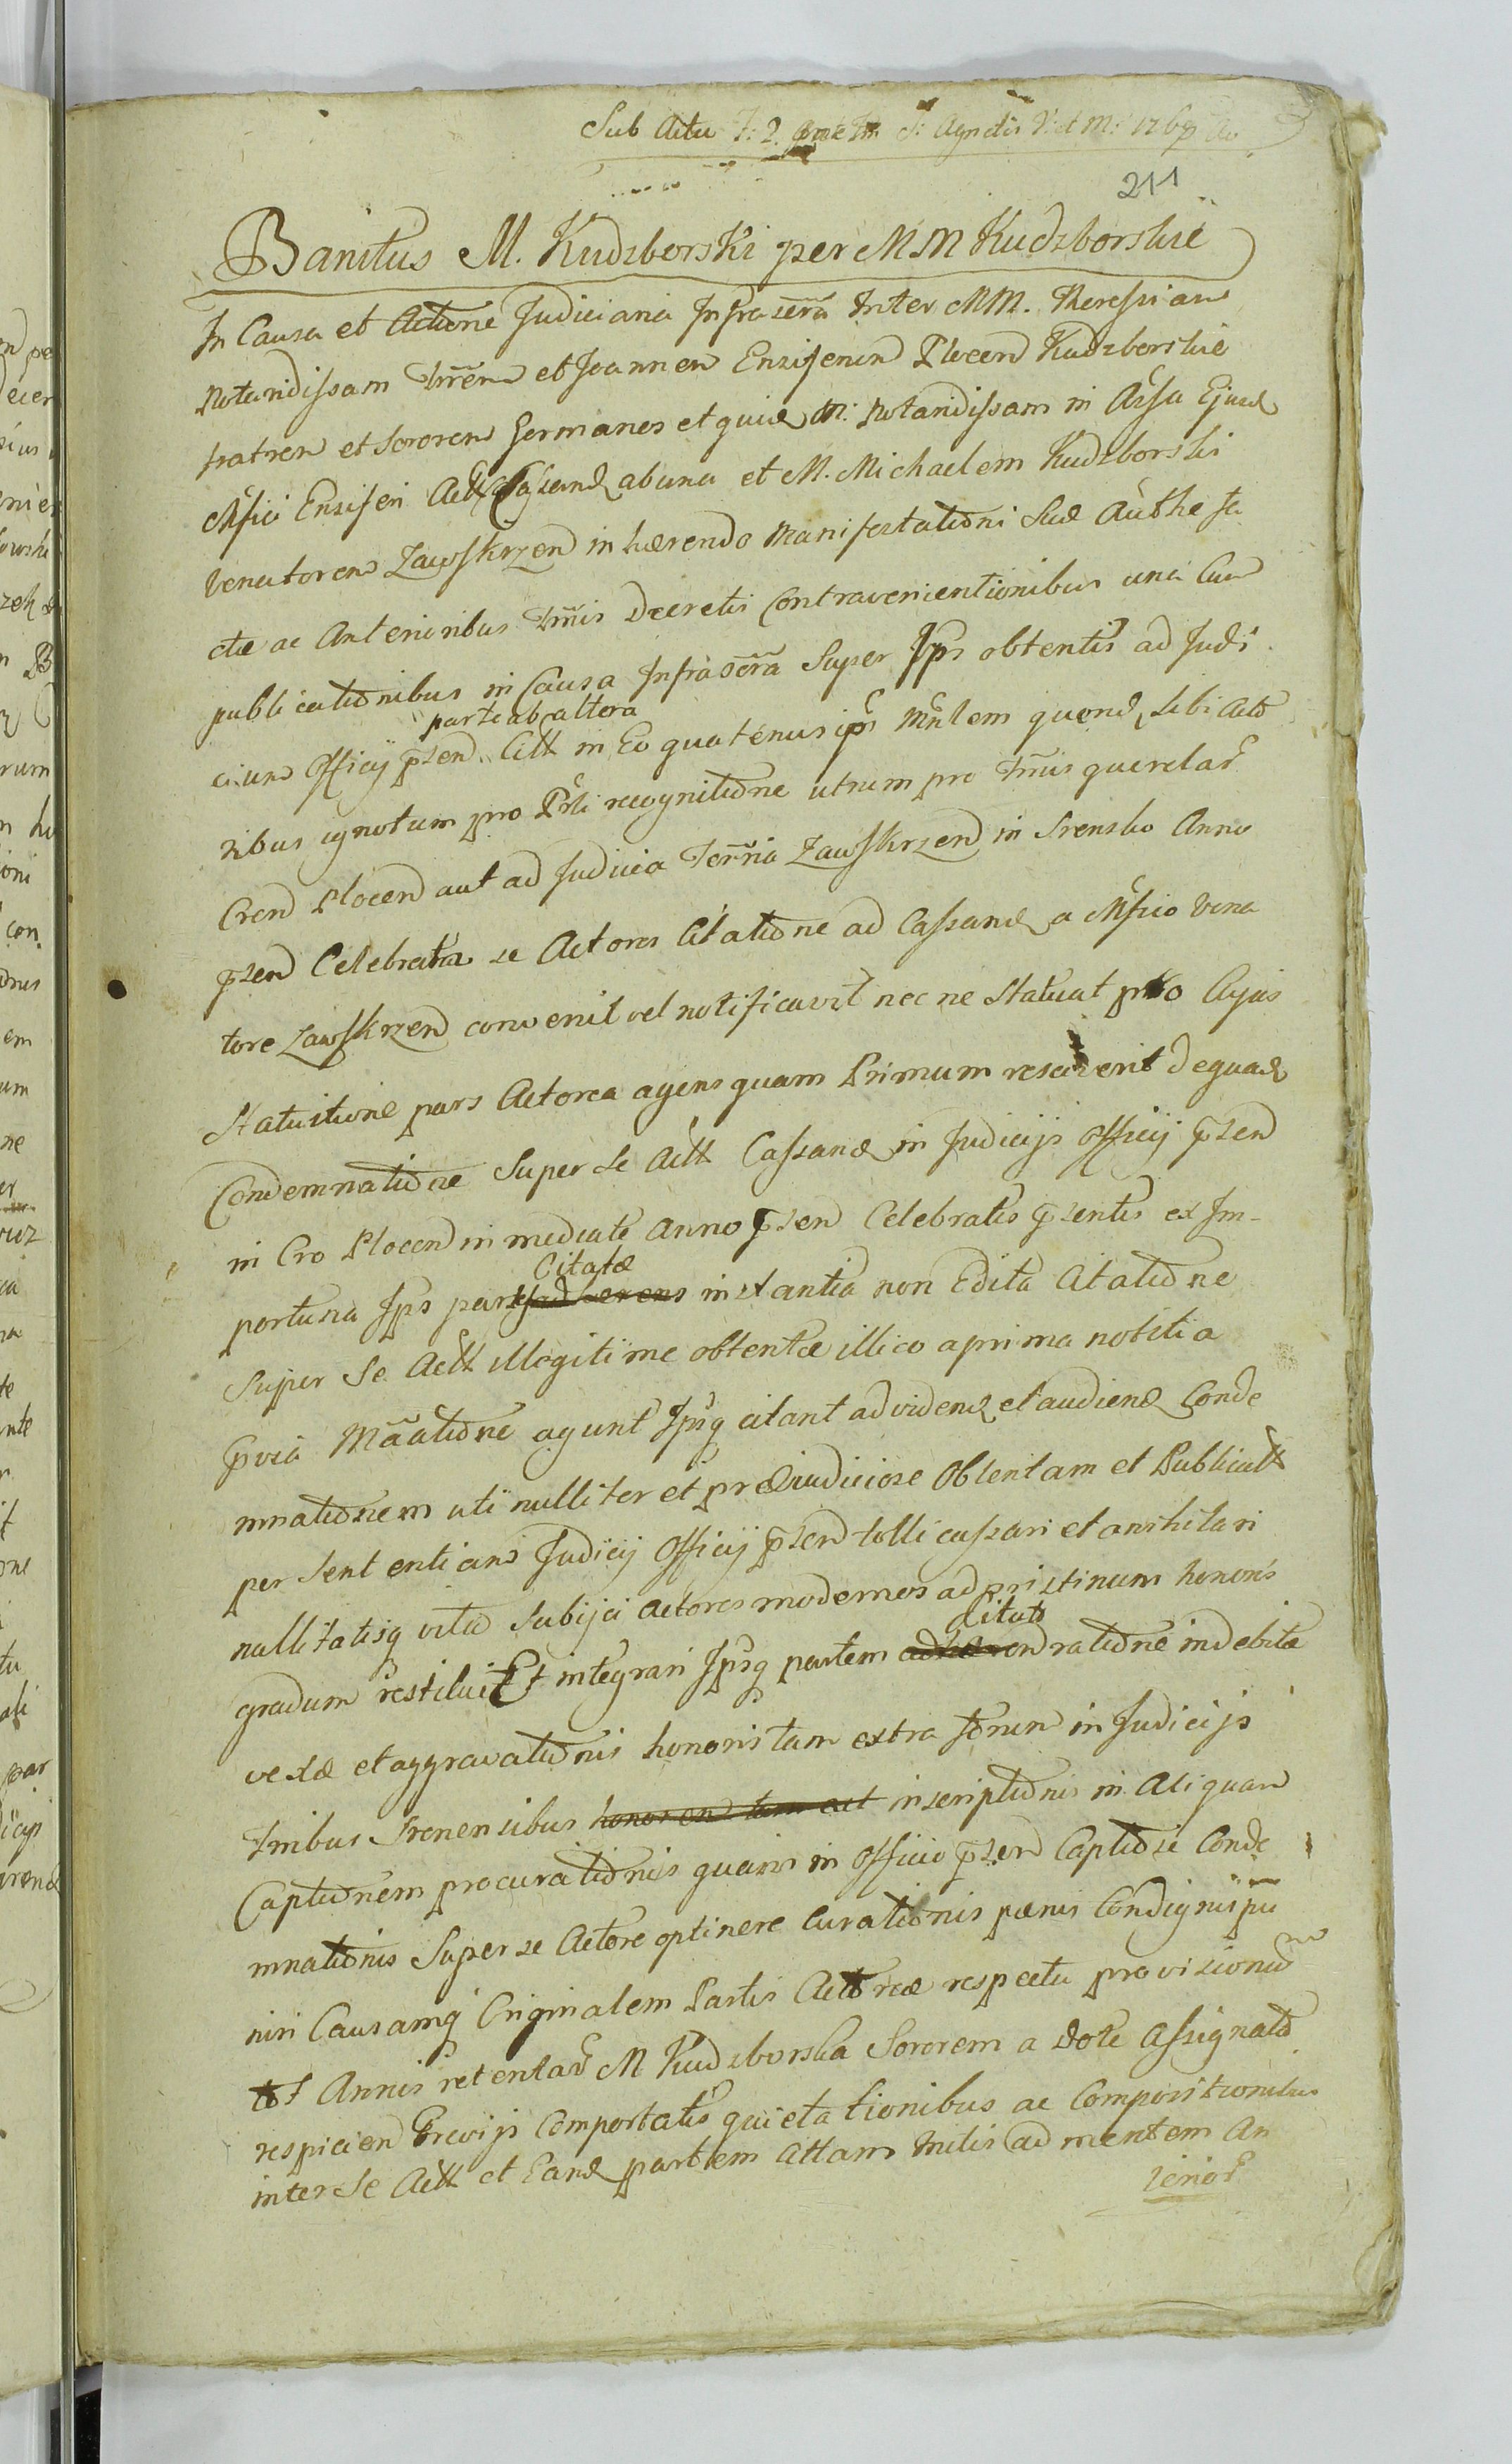 Sub Actu F: 2. S: Agnetis V: et M: 176
211
Banitus M. Kudzborski per MM Kudzborskie
In Causa et Actione Judiciaria Infrascrã Inter MM. Theressiam
Notaridissam Trrẽn et Joannem Ensiferum Plocen Kudzborskie
fratrem et Sororem Germanos et quid M: Notaridissam in Assa Ejusd
Mfici Ensiferi Actt ab una et M. Michaelem Kudzborski
Venatorem Zawskrzen inhærendo Manifestationi Suæ Authe
ctæ ac Anterioribus Trris Decretis Contravenientionibus una Cum
publicationibus in Causa Infrascrã Super Ips obtentis ad Judi
parte ab altera
cium Officij pszen Citt in Eo quatenus ips Mnlem quond sibi Acto
ribus ignotum pro Prli recognitione utrum pro Trris querelar
Cren Plocen aut ad Judicia Terria Zawskrzen in Srensko Anno
pszen Celebrata se Actores Citatione ad Cassand a Mfico Vena
tore Zawskrzen convenit vel notificavit nec ne Statuat pro Cujus
Statuitione pars Actorea agens quam Primum resciverit de quad
Condemnatione Super Se Actt Cassand in Judicijs Officij pszen
in Cro Plocen immediate Anno pszen Celebratis pszentis ex Im-
Citatæ
portuna Ips partis adhærens instantia non Edita Citatione
Super Se Actt illegitime obtentæ illico a prima notitia
pvia Mãatione agunt Ipsq citant ad vidend et audiend Conde
mnationem uti nulliter et præiudiciose Obtentam et Publicatt
per Sententiam Judicij Officij pszen tolli cassari et anihilari
nullitatisq vitio Subijci Actores modernos ad pristinum honoris
Citat
gradum restitui Et integrari Ipsq partem adhæren ratione indebitæ
vexæ et aggravationis honoris tam extra forum in Judicijs
Trribus Srenensibus honoron tam aut inscriptionis in Aliquam
Captionem procurationis quam in Officio pszen Captionis Conde
mnationis Super se Actore optinere Curationis pænis Condignis pu
niri Causamq Originalem Partis Actoreæ respectu provisionum
tot Annis retentar M Kudzborska Sororem a Dote Assignato
respicien Prævijs Comportatis quietationibus ac Compositionibus
inter Se Actt et Eand partem attam Initis ad mentem An
teriõr